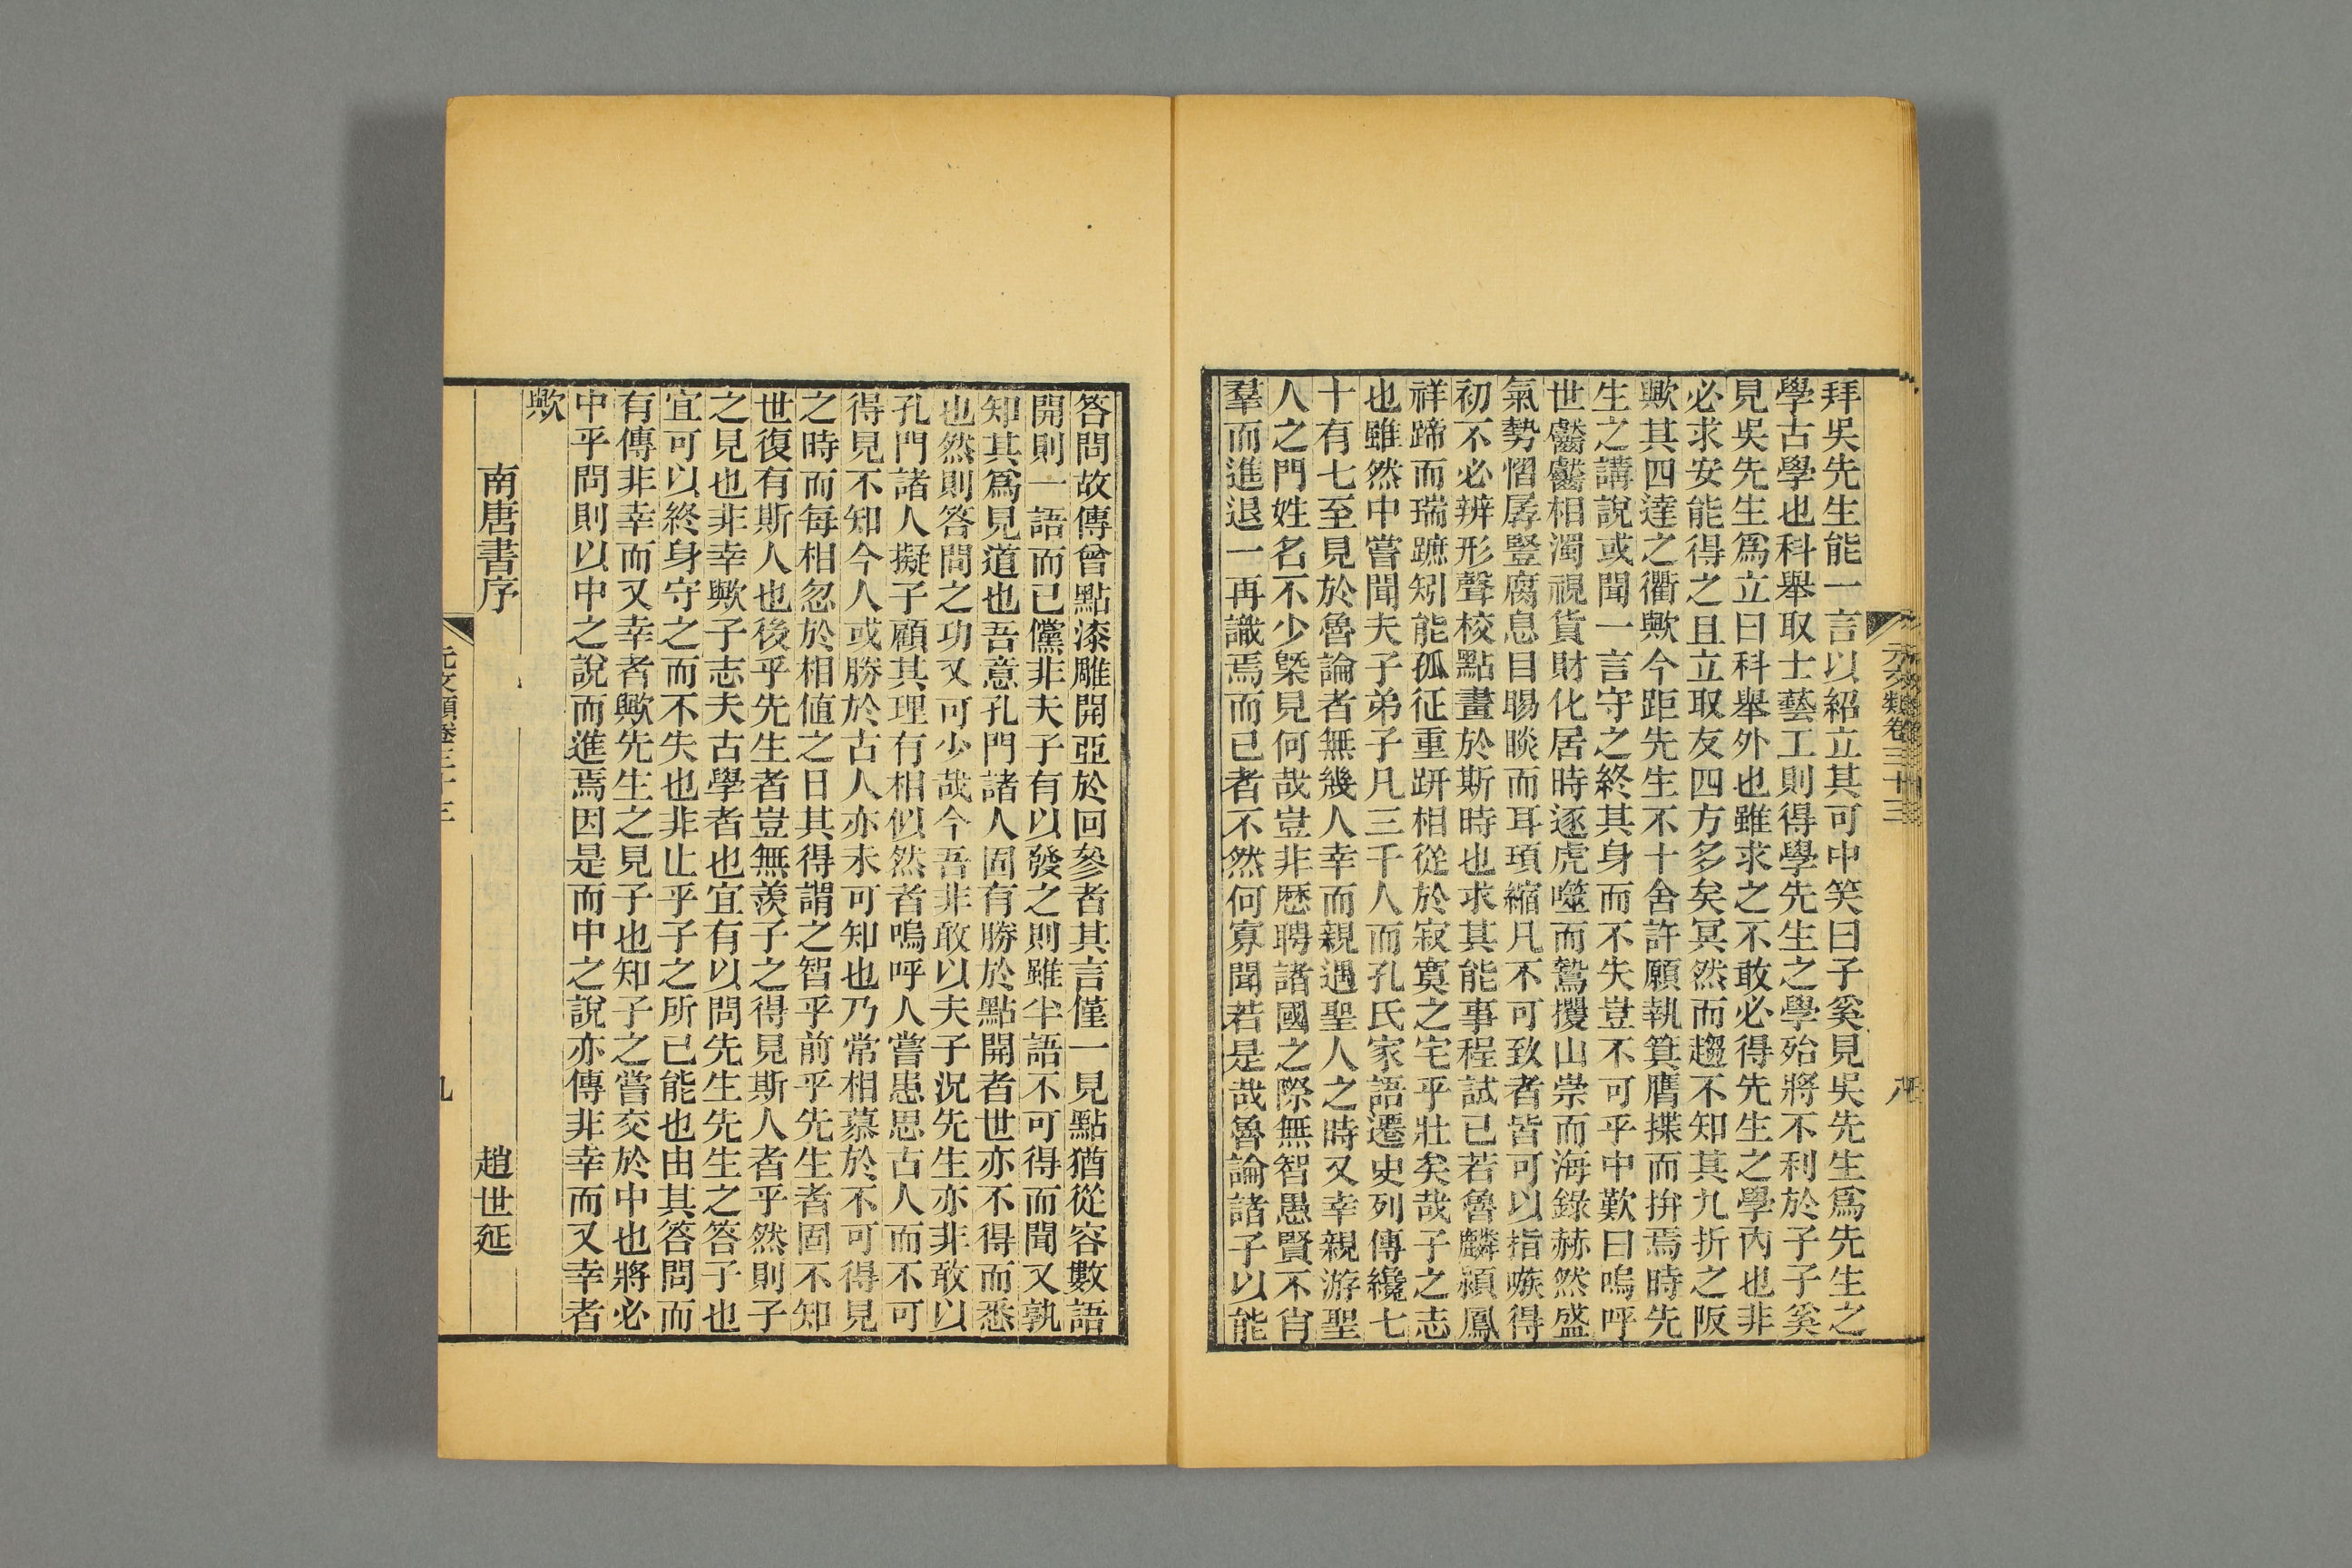 元文類卷三十三
八
拜吳先生能一言以紹立其可中笑曰子奚見吳先生爲先生之
學古學也科舉取士藝工則得學先生之學殆將不利於子子奚
見吳先生爲立曰科舉外也雖求之不敢必得先生之學內也非
必求安能得之且立取友四方多矣冥然而趨不知其九折之阪
歟其四達之衢歟今距先生不十舍許願執箕膺揲而拚焉時先
生之講說或聞一言守之終其身而不失豈不可乎中歎曰嗚呼
世齾齾相濁視貨財化居時逐虎噬而鷙攫山崇而海錄赫然盛
氣勢慴孱豎腐息目賜睒而耳頊縮凡不可致者皆可以指嗾得
初不必辨形聲校點畫於斯時也求其能事程試已若魯麟潁鳳
祥蹄而瑞蹠矧能孤征重趼相從於寂寞之宅乎壯矣哉子之志
也雖然中嘗聞夫子弟子凡三千人而孔氏家語遷史列傳纔七
十有七至見於魯論者無幾人幸而親遇聖人之時又幸親游聖
人之門姓名不少槩見何哉豈非歷聘諸國之際無智愚賢不肖
羣而進退一再識焉而已者不然何寡聞若是哉魯論諸子以能
答問故傳曾點漆雕開亞於回參者其言僅一見點猶從容數語
開則一語而已儻非夫子有以發之則雖半語不可得而聞又孰
知其爲見道也吾意孔門諸人固有勝於點開者世亦不得而悉
也然則答問之功又可少哉今吾非敢以夫子況先生亦非敢以
孔門諸人擬子顧其理有相似然者嗚呼人嘗患思古人而不可
得見不知今人或勝於古人亦未可知也乃常相慕於不可得見
之時而每相忽於相值之日其得謂之智乎前乎先生者固不知
世復有斯人也後乎先生者豈無羨子之得見斯人者乎然則子
之見也非幸歟子志夫古學者也宜有以問先生先生之答子也
宜可以終身守之而不失也非止乎子之所已能也由其答問而
有傳非幸而又幸者歟先生之見子也知子之嘗交於中也將必
中乎問則以中之說而進焉因是而中之說亦傳非幸而又幸者
歟
南唐書序 趙世延
元文類卷三十三
九